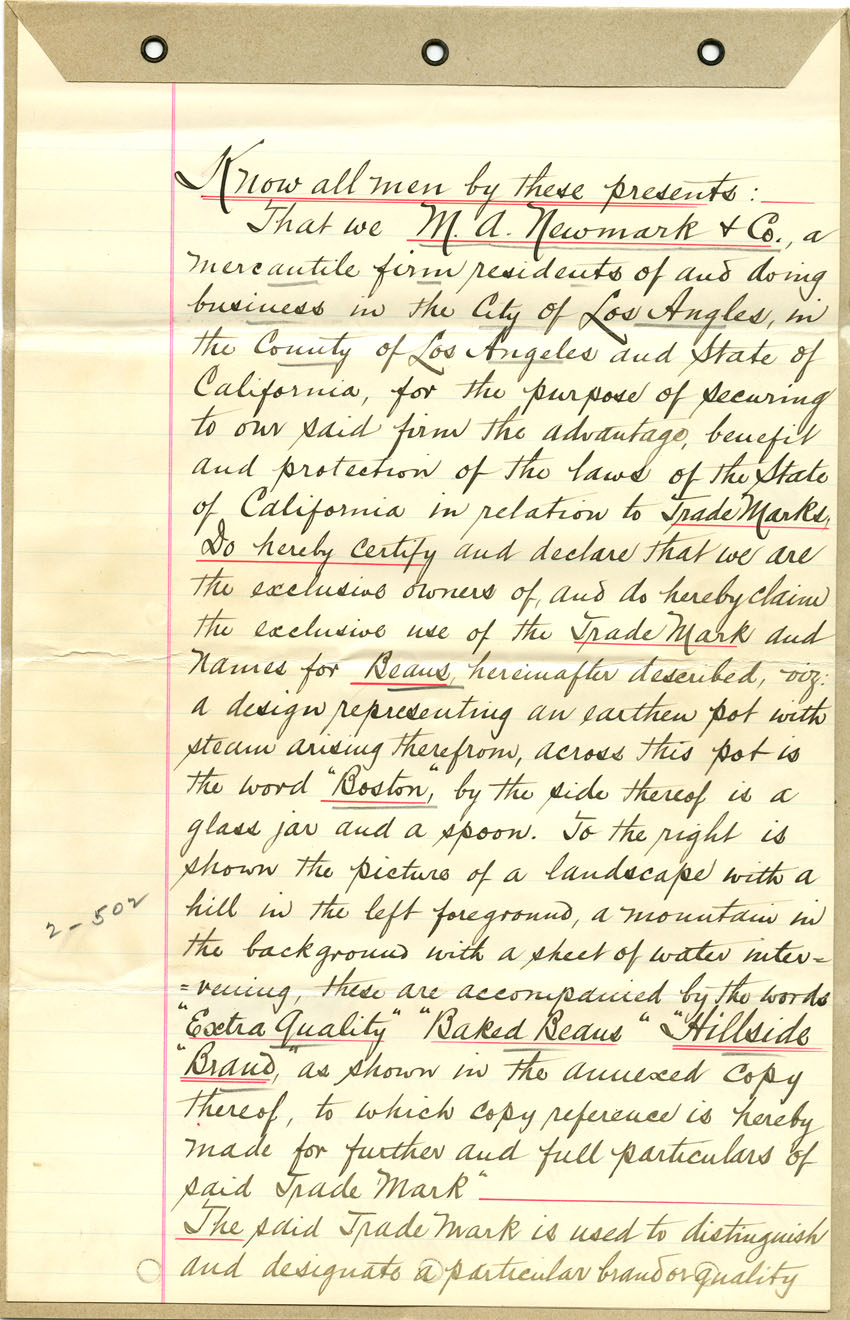 Know all men by these presents :
That we M. A. Newmark & Co., a
mercantile firm residents of and doing
business in the City of Los Angles, in
the County of Los Angeles and State of
California, for the purpose of securing
to our said firm the advantage, benefit
and protection of the laws of the State
of California in relation to Trade Marks,
Do hereby certify and declare that we are
the exclusive owners of, and do hereby claim
the exclusive use of the Trade Mark and
Names for Beans, hereinafter described, viz:
a design representing an earthen pot with
steam arising therefrom, across this pot is
the word "Boston", by the side thereof is a
glass jar and a spoon. To the right is
shown the picture of a landscape with a
hill in the left foreground, a mountain in
2-502
the background with a sheet of water inter=
=vening, these are accompanied by the words
"Extra Quality" "Baked Beans" "Hillside
"Brand," as shown in the annexed copy
thereof, to which copy reference is hereby
made for further and full particulars of
said Trade Mark"
The said Trade Mark is used to distinguish
and designate a particular brand or quality